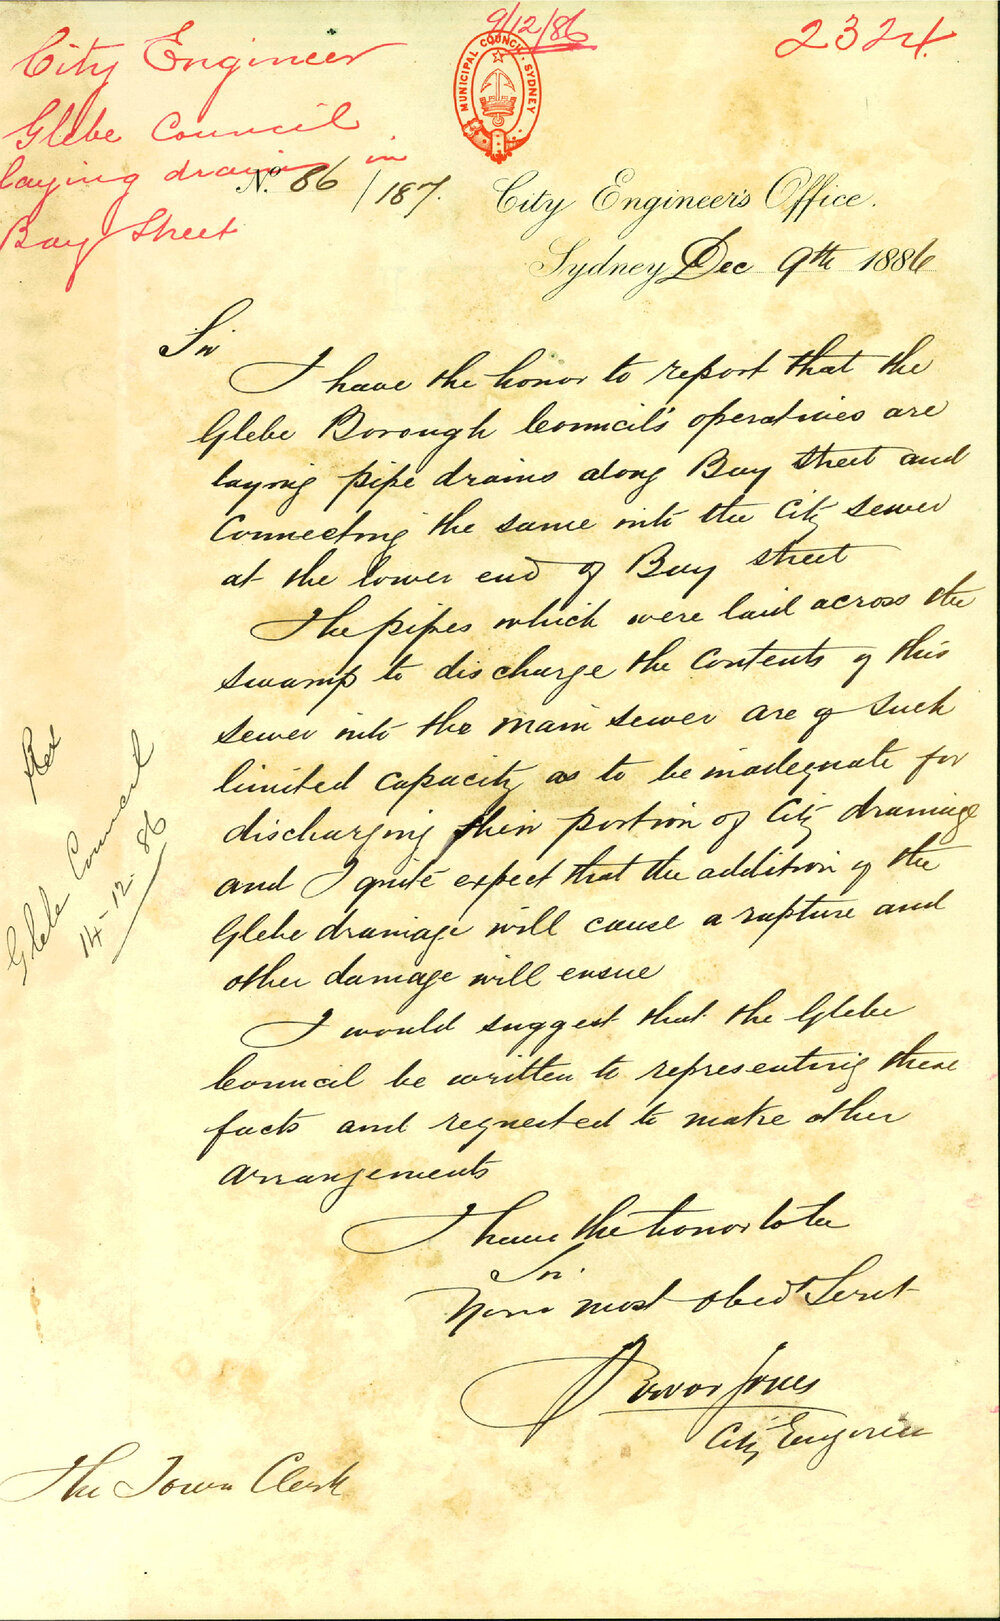 9/12/86
2324
City Engineer
Glebe Council
laying drains in
Bay Street
MUNICIPAL COUNCIL SYDNEY
No. 86/187.
City Engineer's Office.
Sydney Dec 9th 1886
Sir
I have the honor to report that the
Glebe Borough Council's operatives are
laying pipe drains along Bay Street and
Connecting the same into the City sewer
at the lower end of Bay street
The pipes which were laid across the
swamp to discharge the contents of this
sewer into the main sewer are of such
limited capacity as to be inadequate for
discharging their portion of City drainage
and I quite expect that the addition of the
Glebe drainage will cause a rupture and
other damage will ensue
I would suggest that the Glebe
Council be written to representing these
facts and requested to make other
arrangements
I have the honor to be
Sir.
Your most obedt Servt
Trevor Jones
City Engineer
The Town Clerk
Glebe Council
14-12-86